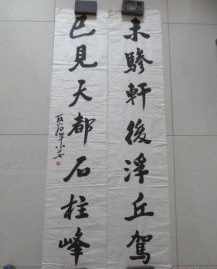 未驂軒後浮丘駕
已見天都石柱峰